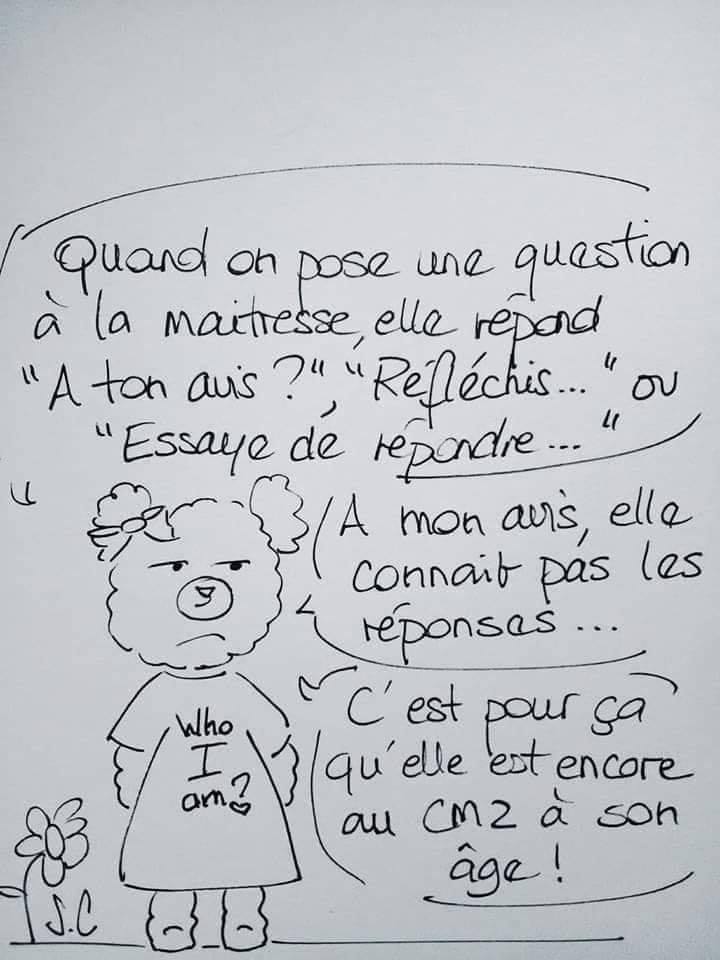 Quand on pose une question
à la maitresse, elle répond
"A ton avis ?", "Réfléchis..." ou
"Essaye de répondre..."
A mon avis, elle
connait pas les
réponses...
C'est pour ça
qu'elle est encore
au CM2 à son
âge !
Who
I
am?
S.C